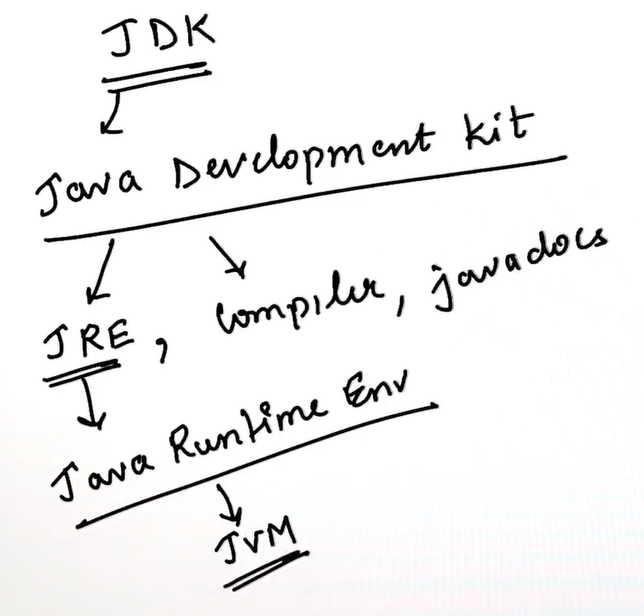 JDK
Java Development kit
JRE, Compiler, javadocs
Java Runtime Env
JVM